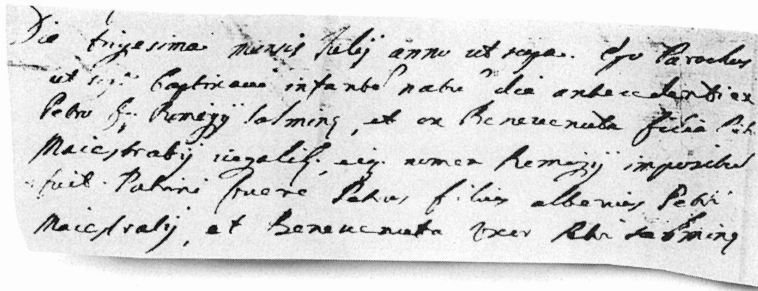 Die trigesima mensis Julij anno ut supa. Ego Parochus
ut sup baptizavi infante natu die antecedenti ex
Petro f. Remigij Salming, et ex Benevenuta filia Petr
Maiestralij iugalib, eiq nomen Remigij impositu
fuit. Patrini fuere Petrus filius Petri
Maiestralij, et Benevenuta Uxor Petri